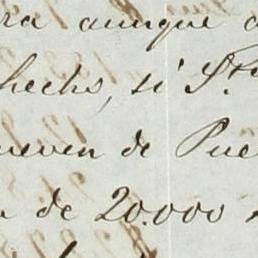 ra aunque
hechs, si Sta
nueven de Pue
de 20.000